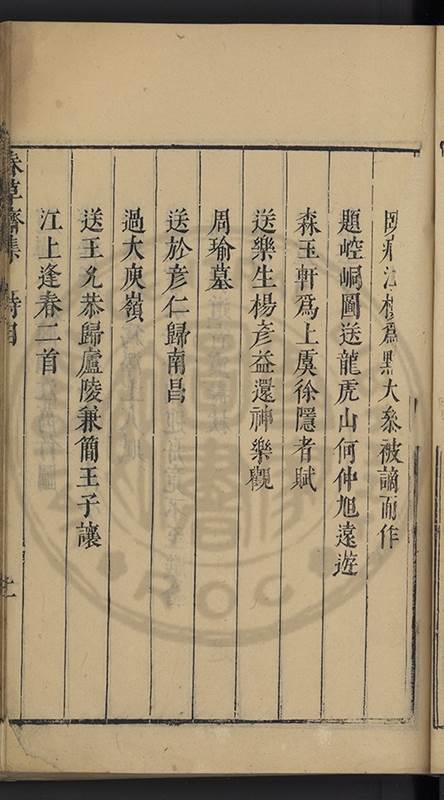 江樓爲點大參被謫而作
題崆峒圖送龍虎山何仲旭遠遊
森玉軒爲上虞徐隱者賦
送樂生楊彦益還神樂觀
周瑜墓
送於彦仁歸南昌
過大庾嶺
送王允恭歸廬陵兼簡王子讓
江上逢春二首
春草齋集 詩目